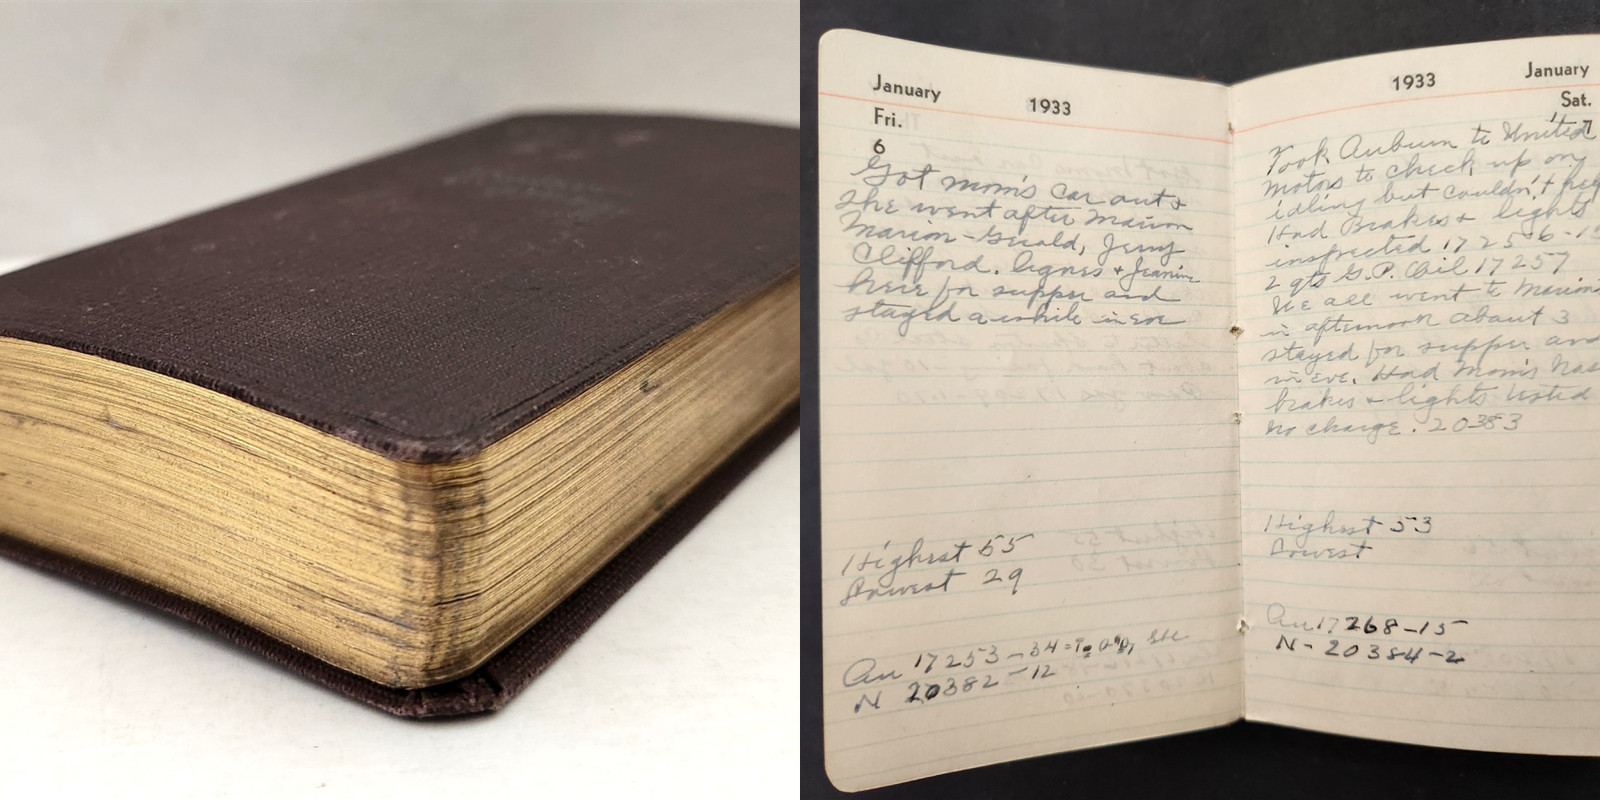 January
1933
Fri.
6
Got mom's car out &
She went after Marion
Marion - Gerald, Jerry
Clifford. Agnes & Jeanine
here for supper and
stayed a while in eve
Highest 55
Lowest 29
Au 17253 - 34 =
N 20382 - 12
1933
January
Sat.
7
Took Auburn to United
Motors to check up on
idling but couldn't
Had Brakes & lights
inspected 17256 - 15
2 qts G.P. Oil 17257
We all went to Marions
in afternoon about 3
stayed for supper and
in eve. Had Mom's Nash
brakes & lights tested
no charge. 20383
Highest 53
Lowest
Au 17268 - 15
N - 20384 - 2